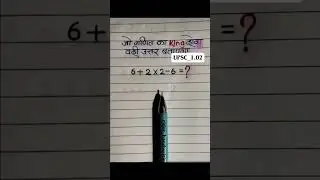 जो गणित का King होगा
वही उत्तर बताएगा
UPSC_1.02
6+2×2-6=?